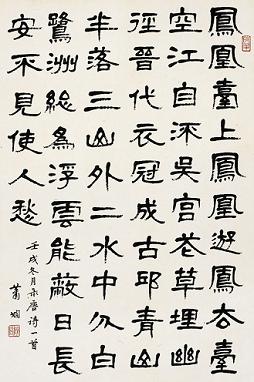 鳳凰臺上鳳凰遊鳳去臺
空江自流吳宮花草埋幽
徑晉代衣冠成古邱青山
半落三山外二水中分白
鷺洲總為浮雲能蔽日長
安不見使人愁
壬戌冬月录唐诗一首
蕭嫻